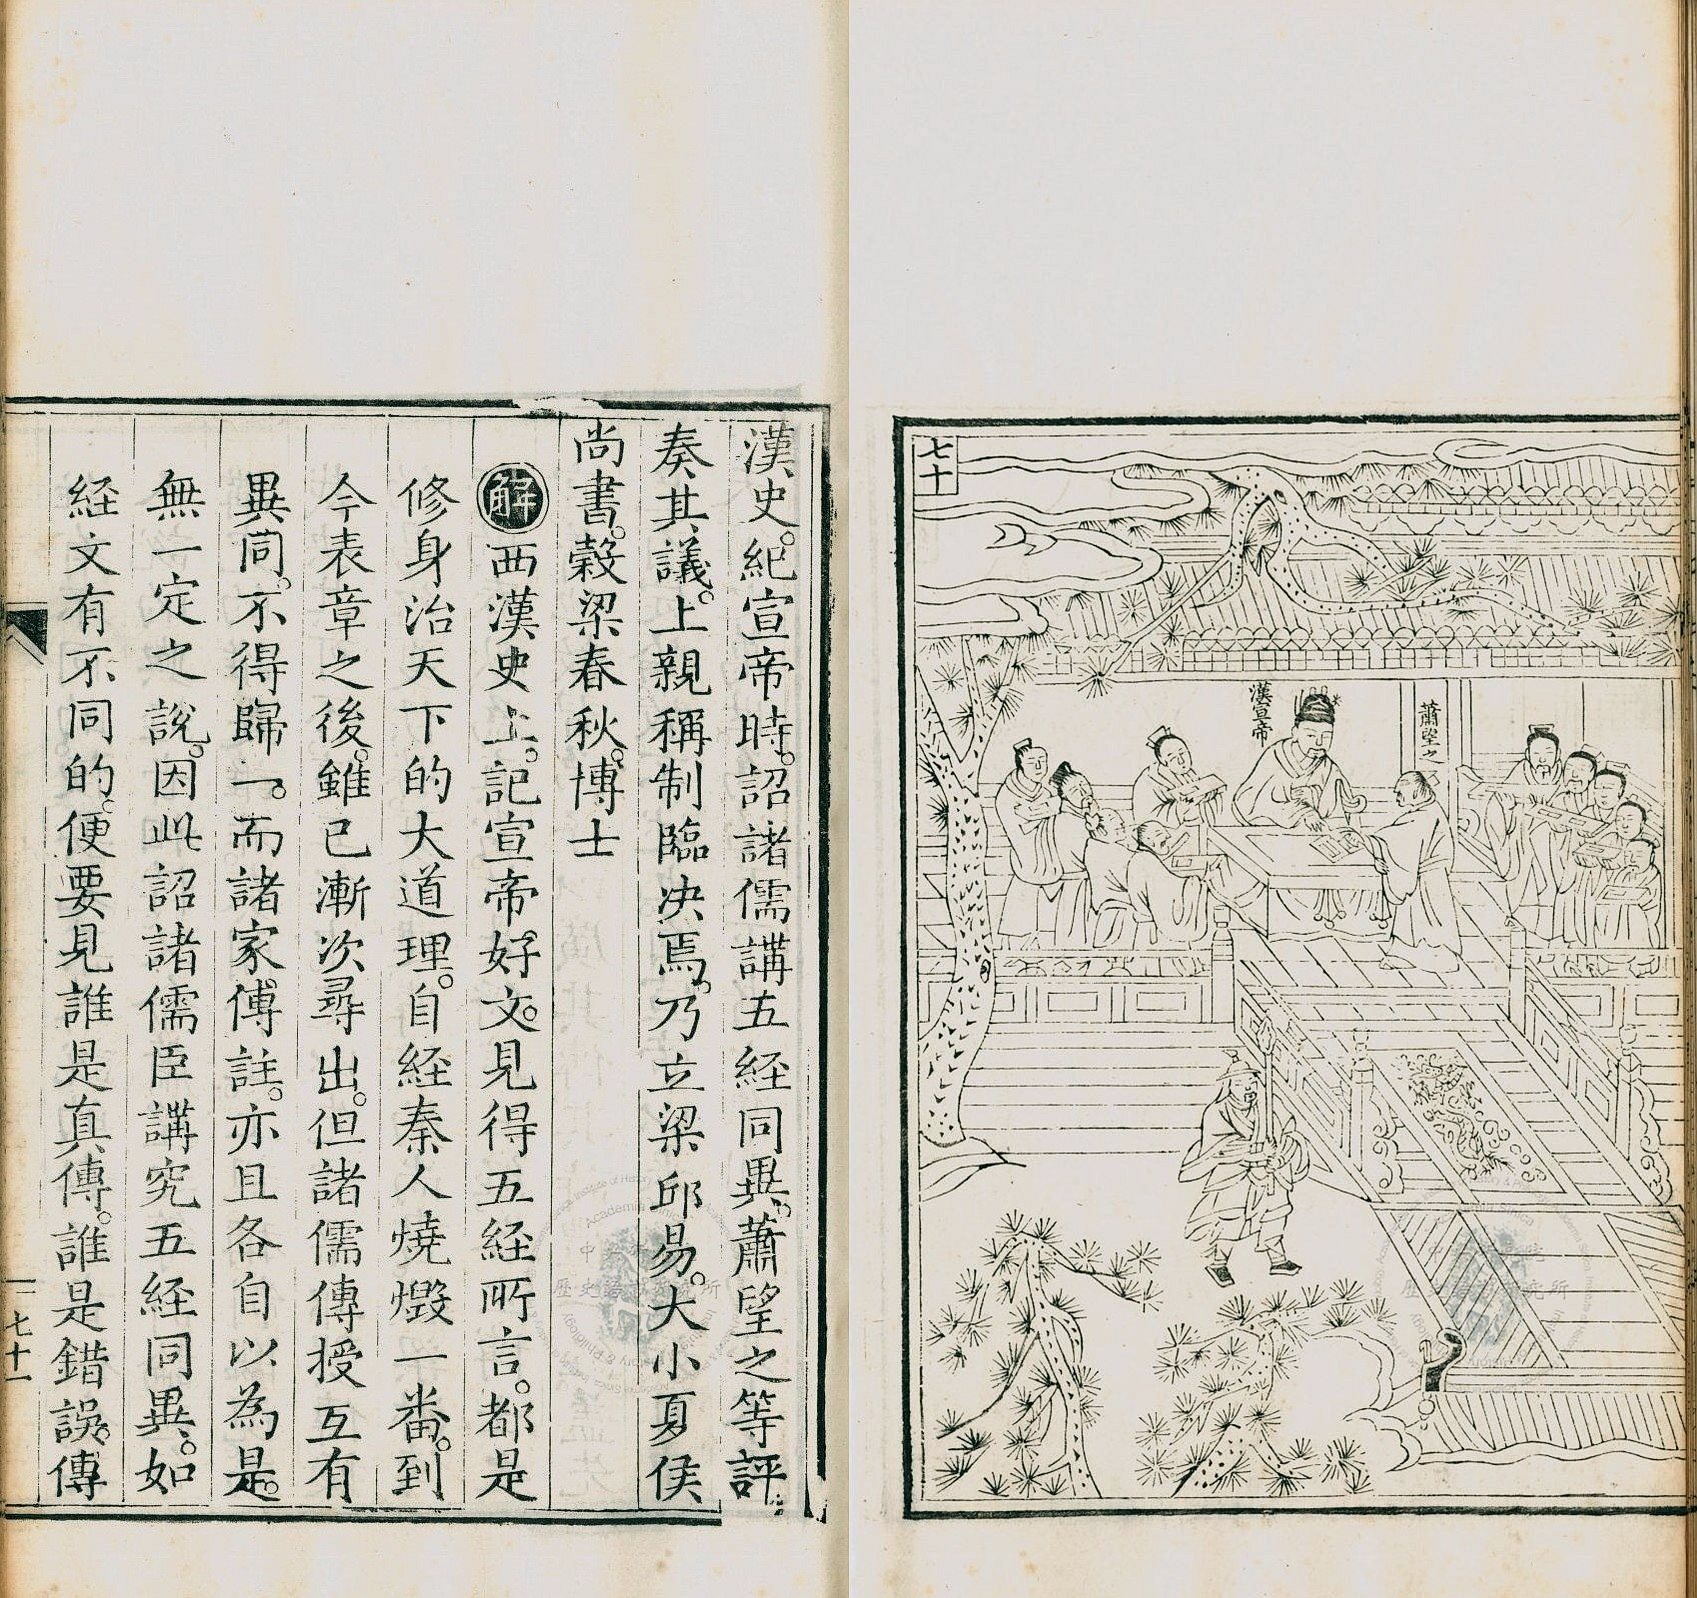 七十
漢宣帝
蕭望之
漢史。紀宣帝時。詔諸儒講五経同異。蕭望之等評
奏其議。上親稱制臨决焉。乃立梁邱易。大小夏侯
尚書。穀梁春秋。博士
解西漢史上。記宣帝。好文。見得五経所言。都是
修身治天下的大道理。自経秦人燒燬一番。到
今表章之後。雖已漸次尋出。但諸儒傳授互有
異同。不得歸一。而諸家傅註。亦且各自以為是。
無一定之說。因此詔諸儒臣講究五経同異。如
経文有不同的。便要見誰是真傳。誰是錯誤。傳
七十一
中央研究院
歷史語言研究所